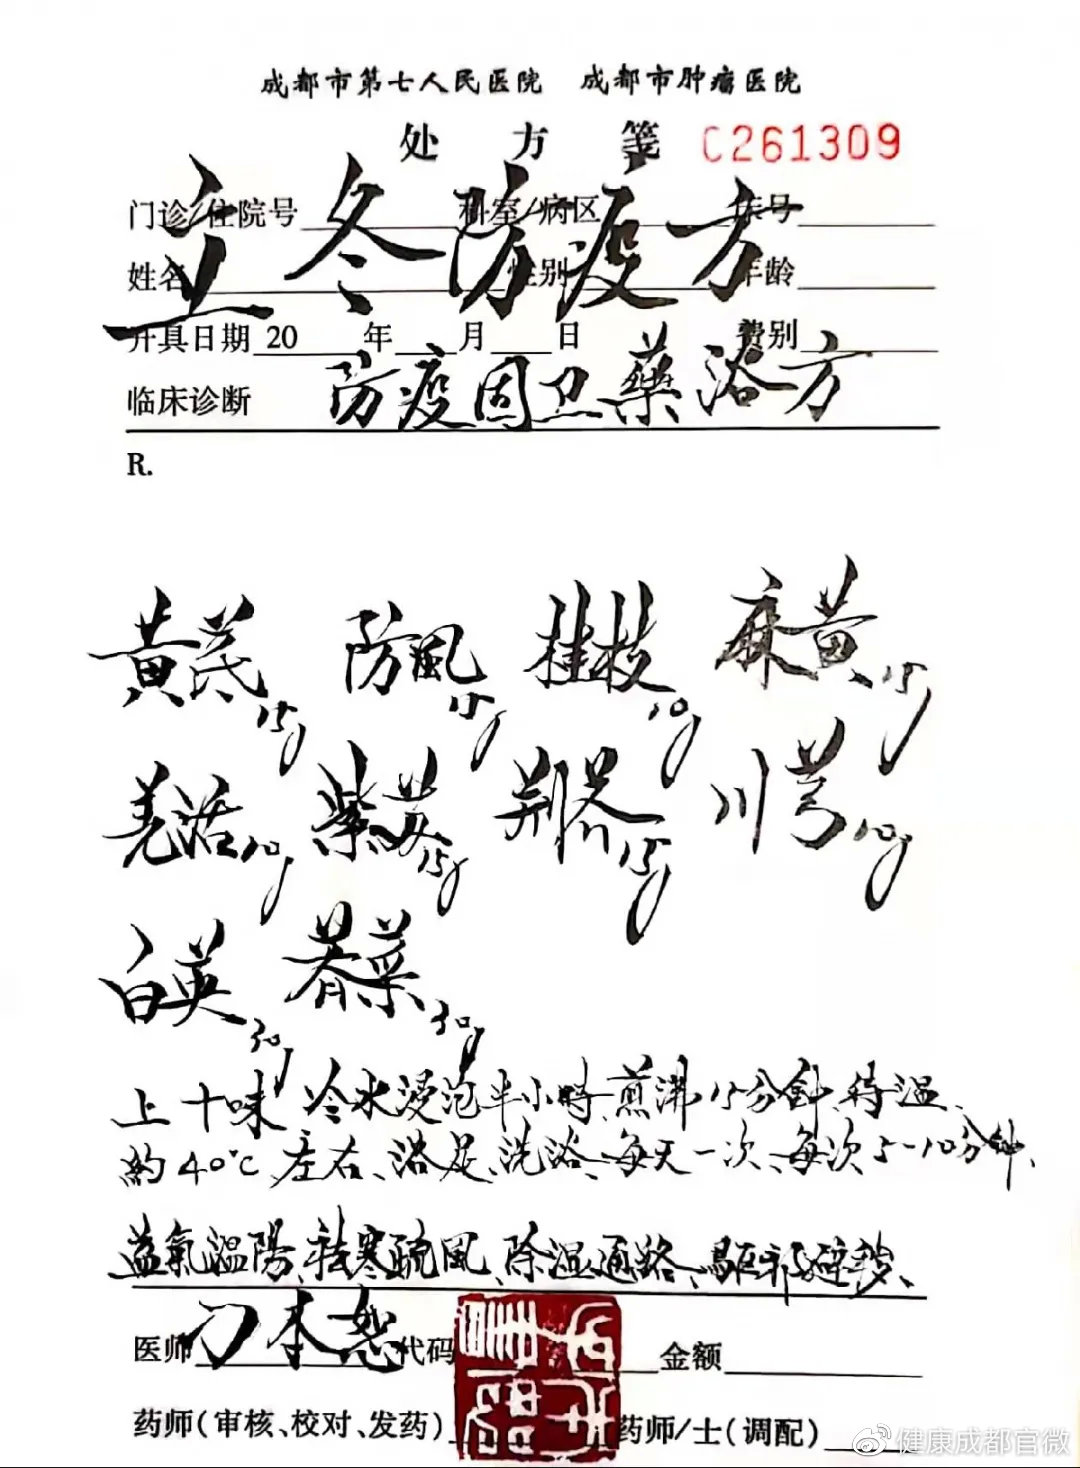 成都市第七人民医院 成都市肿瘤医院
处方笺 C261309
立冬防疫方
门诊/住院号 科室/病区 床号
姓名 性别 年龄
开具日期 20 年 月 日 费别
临床诊断 防疫固卫藥浴方
R.
黄芪15g 防風15g 桂枝10g 麻黄15g
羌活10g 紫苏15g 荆芥15g 川芎10g
白英30g 菜30g
上十味、冷水浸泡半小時、煎沸15分鈡、待温、
約40℃左右、浴足、洗浴、每天一次、每次5-10分钟、
益氣温陽、祛寒疏風、除湿通络、驅邪避秽、
医师 刁本恕 代码 金额
药师(审核、校对、发药) 药师/士(调配)
健康成都官微